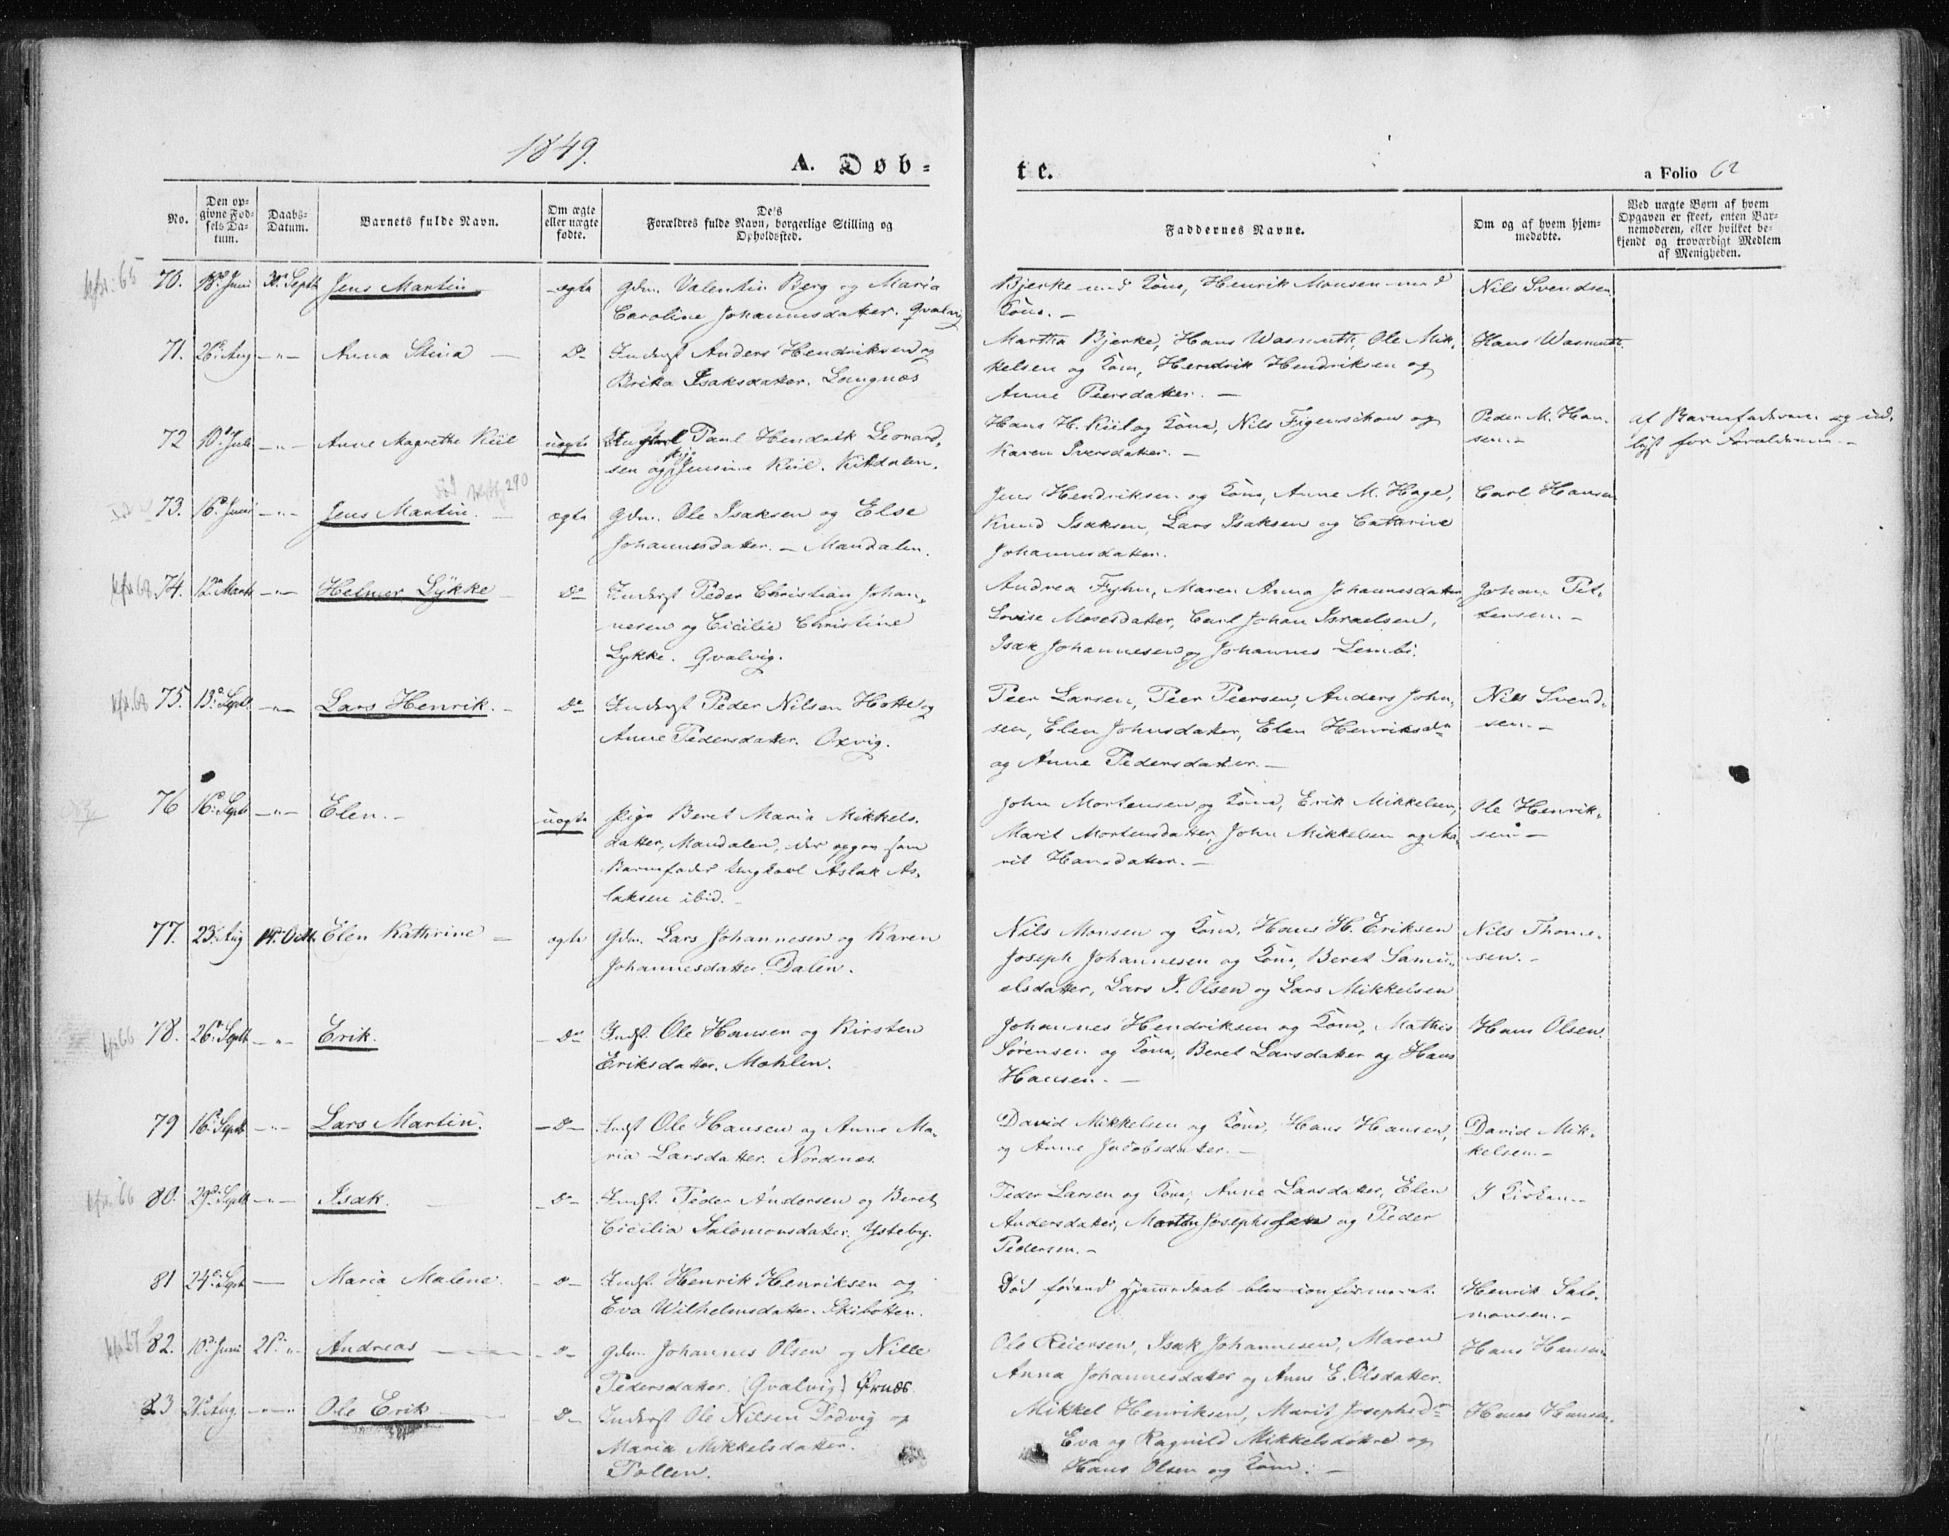 1849.
A. Døb-
te.
a Folio 62
No.
Den op-
givne Fød-
sels Da-
tum.
Daabs-
Datum.
Barnets fulde Navn.
Om ægte
eller uægte
fødte.
De's
Forældres fulde Navn, borgerlige Stilling og
Opholdssted.
Faddernes Navne.
Om og af hvem hjem-
medøbte.
Ved uægte Børn af hvem
Opgaven er skeet, enten Bar-
nemoderen, eller hvilket be-
kjendt og troværdigt Medlem
af Menigheden.
70. 18de Juni 30te Septb Jens Martin ægte Gdm. Valentin Berg og Maria
Caroline Johannesdatter. Qvalvig
Bjerke med Kone, Henrik Monsen med
Kone. -
Nils Svendsen
71. 26de Aug -"- Anna Stina - Do Inderst Anders Hendriksen og
Brita Isaksdatter. Langnæs
Martha Bjerke, Hans Wasmuth, Ole Mik-
kelsen og Kone, Hendrik Hendriksen og
Anne Peersdatter. -
Hans Wasmuth.
72 10de Juli -"- Anne Magrethe Kiil uægte Ungkarl Paul Hendrik Leonard-
sen og Pige Jensine Kiil. Kitdalen.
Hans H. Kiil og Kone, Nils Figenschou og
Karen Iversdatter. -
Peder M. Han-
sen. -
af Barnefaderen og ind-
lagt for Forældrene. -
73. 16de Juni -"- Jens Martin. - ægte Gdm. Ole Isaksen og Else
Johannesdatter. - Mandalen.
Jens Hendriksen og Kone, Anne M. Hage,
Knud Isaksen, Lars Isaksen og Cathrine
Johannesdatter.
Carl Hansen
74. 12te Marts -"- Helmer Lykke - Do Inderst Peder Christian Johan-
nesen og Cicilie Christine
Lykke. Qvalvig.
Andrea Fyhn, Maren Anna Johannesdatter,
Lovise Mosesdatter, Carl Johan Israelsen,
Isak Johannesen og Johannes Lembi.
Johan Pet-
tersen. -
75. 13de Septb. -"- Lars Henrik. - Do Inderst Peder Nilsen Hotte og
Anne Pedersdatter. Oxvig.
Peer Larsen, Peer Peersen, Anders John-
sen, Elen Johnsdatter, Elen Henriksdtr
og Anne Pedersdatter. -
Nils Svend-
sen. -
76 16de Septb -"- Elen. - uægte Pige Beret Maria Mikkels-
datter, Mandalen, der opgav som
Barnefader Ungkarl Aslak As-
laksen ibid. -
John Mortensen og Kone, Erik Mikkelsen,
Marit Mortensdatter, John Mikkelsen og Ma-
rit Hansdatter. -
Ole Henrik-
sen -
77. 23de Aug 14de Octb. Elen Kathrine - ægte Gdm. Lars Johannesen og Karen
Johannesdatter. Dalen.
Nils Monsen og Kone, Hans H. Eriksen
Joseph Johannesen og Kone, Beret Samu-
elsdatter, Lars J. Olsen og Lars Mikkelsen
Nils Thome-
sen. -
78. 26de Septb -"- Erik. - Do Indst. Ole Hansen og Kirsten
Eriksdatter. Mohlen.
Johannes Hendriksen og Kone, Mathis
Sørensen og Kone, Beret Larsdatter og Hans
Hansen. -
Hans Olsen.
79 16de Septb -"- Lars Martin. - Do - Indst Ole Hansen og Anne Ma-
ria Larsdatter. Nordnes.
David Mikkelsen og Kone, Hans Hansen,
og Anne Jacobsdatter. -
David Mik-
kelsen. -
80. 29de Septb -"- Isak. - Do - Indst. Peder Andersen og Beret
Cicilia Salomonsdatter. Ysteby.
Peder Larsen og Kone, Anne Larsdatter, Elen
Andersdatter, Martin Josephsen og Peder
Pedersen. -
I Kirken. -
81 24de Septb - Maria Malene. - Do - Indst. Henrik Henriksen og
Eva Wilhelmsdatter. Skibotten.
Død førend Hjemmedaab blev confirmeret.
Henrik Salo-
monsen. -
82. 10de Juni 21de " Andreas - Do - Gdm. Johannes Olsen og Nille
Pedersdatter. (Qvalvig) Ørnæs.
Ole Reiersen, Isak Johannesen, Maren
Anna Johannesdatter og Anne E. Olsdatter.
Hans Hansen
83 21de Aug. -"- Ole Erik - Do - Inderst Ole Nilsen Dodvig og
Maria Mikkelsdatter.
Pollen.
Mikkel Henriksen, Marit Josephsdtr
Eva og Ragnild Mikkelsdøtre og
Hans Olsen og Kone. -
Hans Hansen.